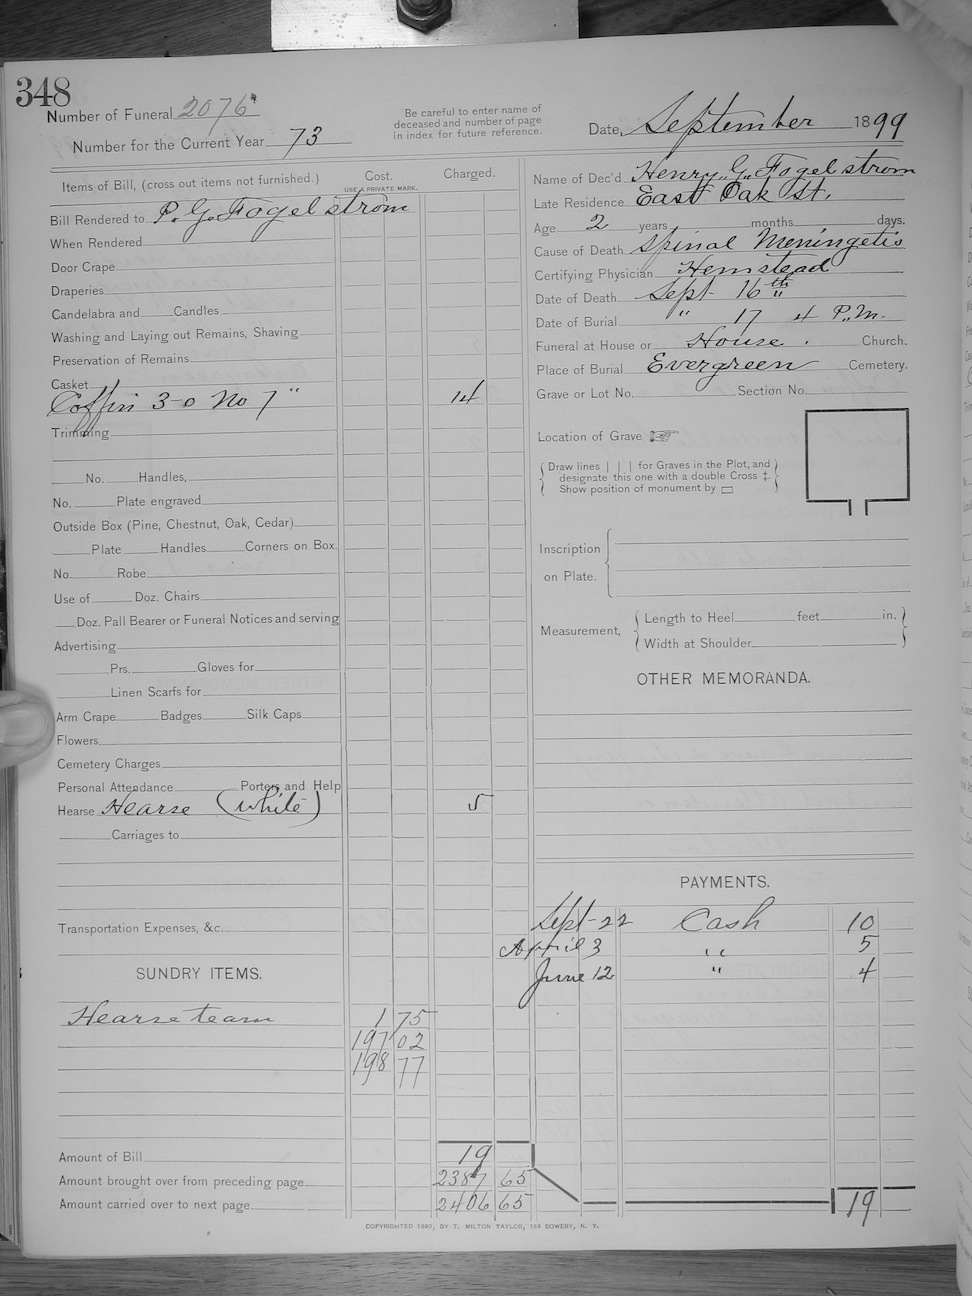 348
Number of Funeral 2076
Number for the Current Year 73
Be careful to enter name of
deceased and number of page
in index for future reference.
Date, September 1899
Items of Bill, (cross out items not furnished.)
Cost.
USE A PRIVATE MARK.
Charged.
Bill Rendered to P. G. Fogelstrom
When Rendered
Door Crape
Draperies
Candelabra and Candles
Washing and Laying out Remains, Shaving
Preservation of Remains
Casket
Coffin 3-0 No 7" 14
Trimming
No. Handles,
No. Plate engraved
Outside Box (Pine, Chestnut, Oak, Cedar)
Plate Handles Corners on Box.
No. Robe
Use of Doz. Chairs
Doz. Pall Bearer or Funeral Notices and serving
Advertising
Prs. Gloves for
Linen Scarfs for
Arm Crape Badges Silk Caps
Flowers
Cemetery Charges
Personal Attendance Porters and Help
Hearse Hearse (White) 5
Carriages to
Transportation Expenses, &c.
SUNDRY ITEMS.
Hearse team 1 75
197 02
198 77
Amount of Bill 19
Amount brought over from preceding page 2387 65
Amount carried over to next page 2406 65
Name of Dec'd Henry. G. Fogelstrom
Late Residence East Oak St.
Age 2 years months days.
Cause of Death Spinal Meningetis
Certifying Physician Hemstead
Date of Death Sept 16th
Date of Burial " 17 4 P.M.
Funeral at House or House. Church.
Place of Burial Evergreen Cemetery.
Grave or Lot No. Section No.
Location of Grave ☞
Draw lines | | | for Graves in the Plot, and
designate this one with a double Cross ‡.
Show position of monument by ▭
Inscription
on Plate.
Measurement, Length to Heel feet in.
Width at Shoulder
OTHER MEMORANDA.
PAYMENTS.
Sept-22 Cash 10
April 3 " 5
June 12 " 4
19
COPYRIGHTED 1890, BY T. MILTON TAYLOR, 163 BOWERY, N. Y.